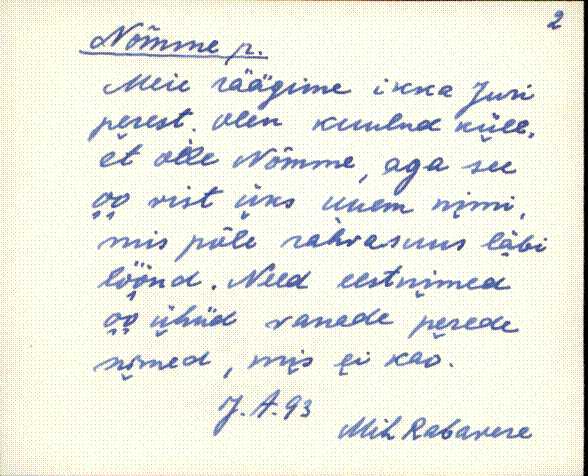 2
Nõmme p.
Meie räägime ikka Juri
perest. Olen kuulnd küll,
et olle Nõmme, aga see
oo vist üks uuem nimi,
mis põle rahvasuus läbi
löönd. Need eestnimed
oo ühüd vanade perede
nimed, mis ei kao.
J. A. 93
Mih Rabavere